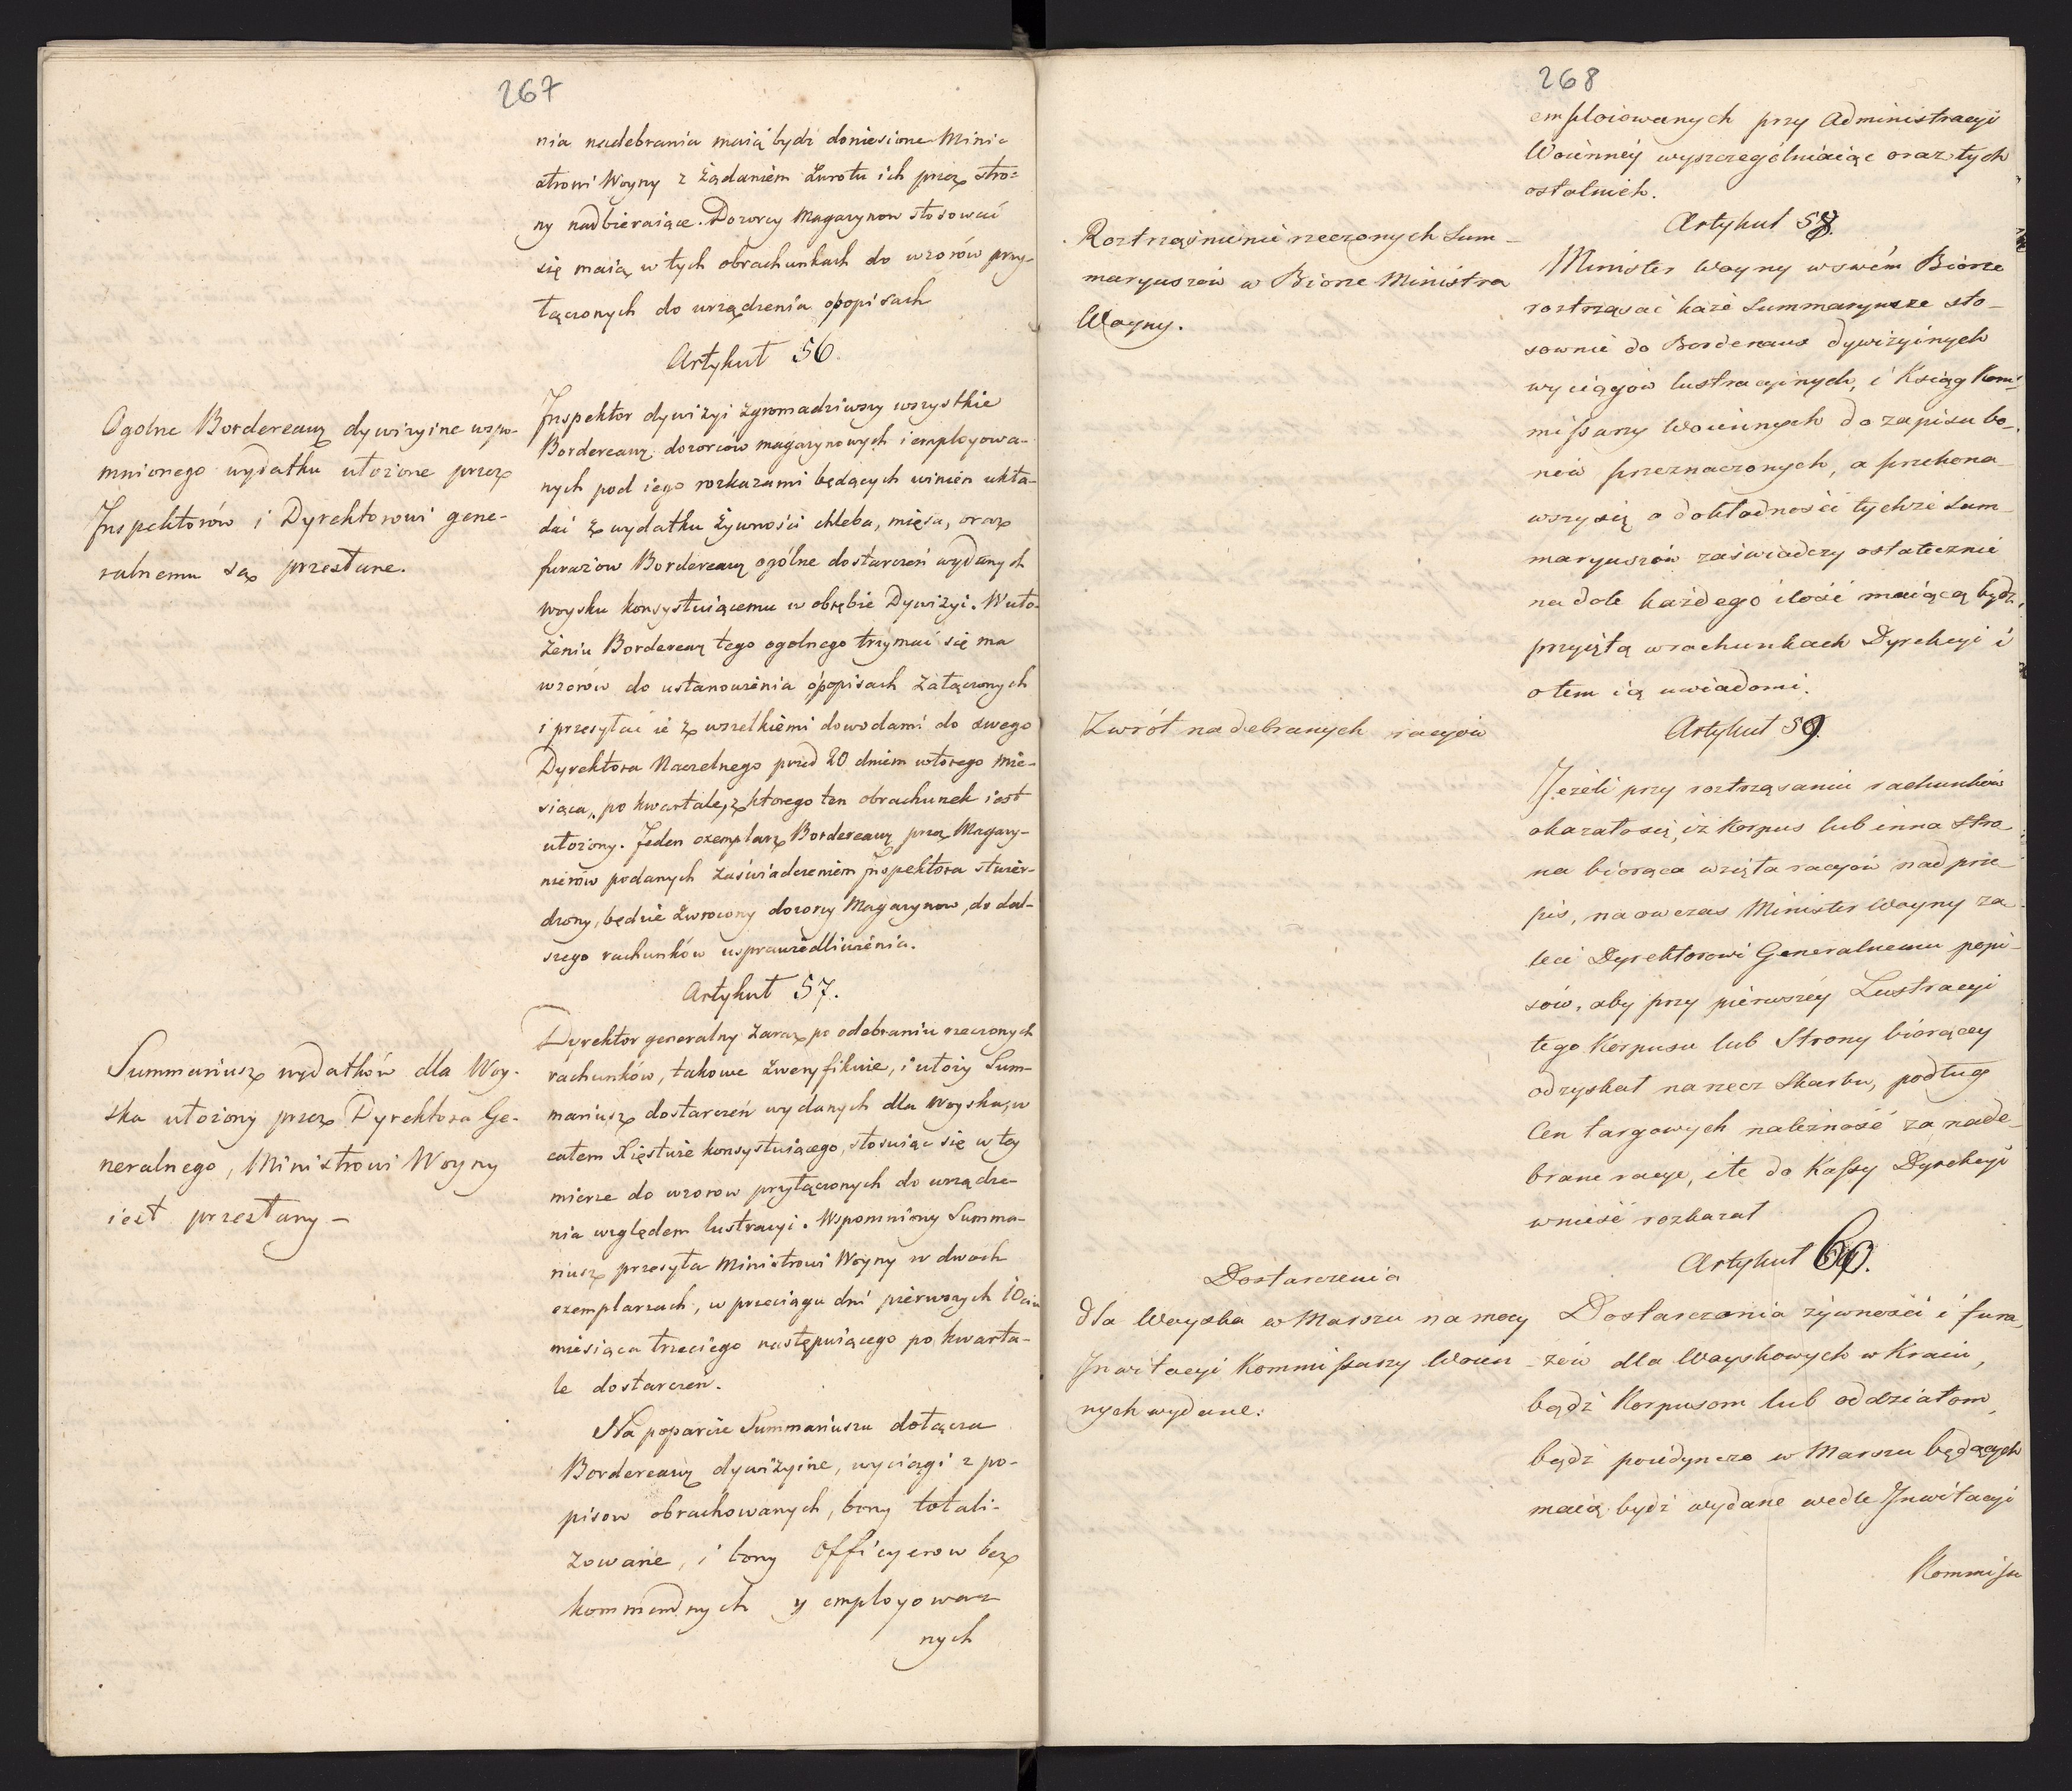 267
nia nadebrania maią bydź doniesione Mini=
strowi Woyny z żądaniem Zwrotu ich przez stro=
ny nadbieraiące. Dozorcy Magazynow stosować
się maią w tych obrachunkach do wzorów przy-
łączonych do urządzenia o popisach
Artykuł 56.
Ogolne Bordereaux dywizyine wspo-
mnionego wydatku ułożone przez
Inspektorów i Dyrektorowi gene-
ralnemu są przesłane.
Inspektor dywizyi zgromadziwszy wszystkie
Bordereaux dozorców magazynowych i employowa-
nych pod iego rozkazami będących winien ukła-
dać z wydatku żywności chleba, mięsa, oraz
furażow Bordereaux ogólne dostarczeń wydanych
woysku konsystuiącemu w obrębie Dywizyi. W uło-
żeniu Bordereaux tego ogolnego trzymać się ma
wzorów do ustanowienia o popisach załączonych
i przesyłać ie z wszelkiemi dowodami do swego
Dyrektora Naczelnego przed 20 dniem wtórego mie-
siąca, po kwartale, z ktorego ten obrachunek iest
ułożony. Jeden exemplarz Bordereaux przez Magazy-
nierów podanych zaświadczeniem Inspektora stwier-
dzony, będzie zwrocony dozorcy Magazynow, do dal-
szego rachunków usprawiedliwienia.
Artykuł 57.
Summariusz wydatków dla Woy-
ska ułożony przez Dyrektora Ge-
neralnego, Ministrowi Woyny
iest przesłany –
Dyrektor generalny zaraz po odebraniu rzeczonych
rachunków, takowe zweryfikuie, i ułoży Sum-
mariusz dostarczeń wydanych dla woyska, w
całem Xięstwie konsystuiącego, stosuiąc się w tey
mierze do wzorow przyłączonych do urządze-
nia względem lustracyi. Wspomniony Summa-
riusz przesyła Ministrowi Woyny w dwoch
exemplarzach, w przeciągu dni pierwszych 10ciu
miesiąca trzeciego następuiącego po kwarta-
le dostarczeń.
Na poparcie Summariuszu dołącza
Bordereaux dywizyine, wyciągi z po-
pisow obrachowanych, bony totali-
zowane, i bony Officyerow bez
kommendnych y employowa-
nych
268
emploiowanych przy Administracyi
Woienney wyszczególniaiąc oraz tych
ostatnich.
Artykuł 58.
Roztrząśnienie rzeczonych Sum-
maryuszów w Biorze Ministra
Woyny.
Minister Woyny w swém Biorze
roztrząsać każe Summaryusze sto-
sownie do Bordereaux dywizyinych
wyciągów lustracyinych, i Ksiąg Kom-
missarzy Woiennych do zapisu bo-
nów przeznaczonych, a przekona-
wszy się o dokładności tychże Sum-
maryuszów zaświadczy ostatecznie
na dole każdego ilość maiącą bydź
przyiętą w rachunkach Dyrekcyi i
o tem ią uwiadomi.
Artykuł 59.
Zwrót nadebranych racyów
Jeżeli przy roztrząsaniu rachunków
okazało się, iż Korpus lub inna stro-
na biorąca wzięła racyów nad prze-
pis, naowczas Minister Woyny za-
leci Dyrektorowi Generalnemu popi-
sów, aby przy pierwszéy Lustracyi
tego Korpusu lub Strony biorącey
odzyskał na rzecz Skarbu, podług
Cen targowych należność za nade-
brane racye, i te do Kassy Dyrekcyi
wnieść rozkazał
Artykuł 60.
Dostarczenia
dla Woyska w Marszu na mocy
Inwitacyi Kommissarzy Woien-
nych wydane.
Dostarczania żywności i fura-
żów dla Woyskowych w Kraiu,
bądź Korpusom lub oddziałom,
bądź poiedynczo w Marszu będących
maią bydź wydane wedle Inwitacyi
Kommissa